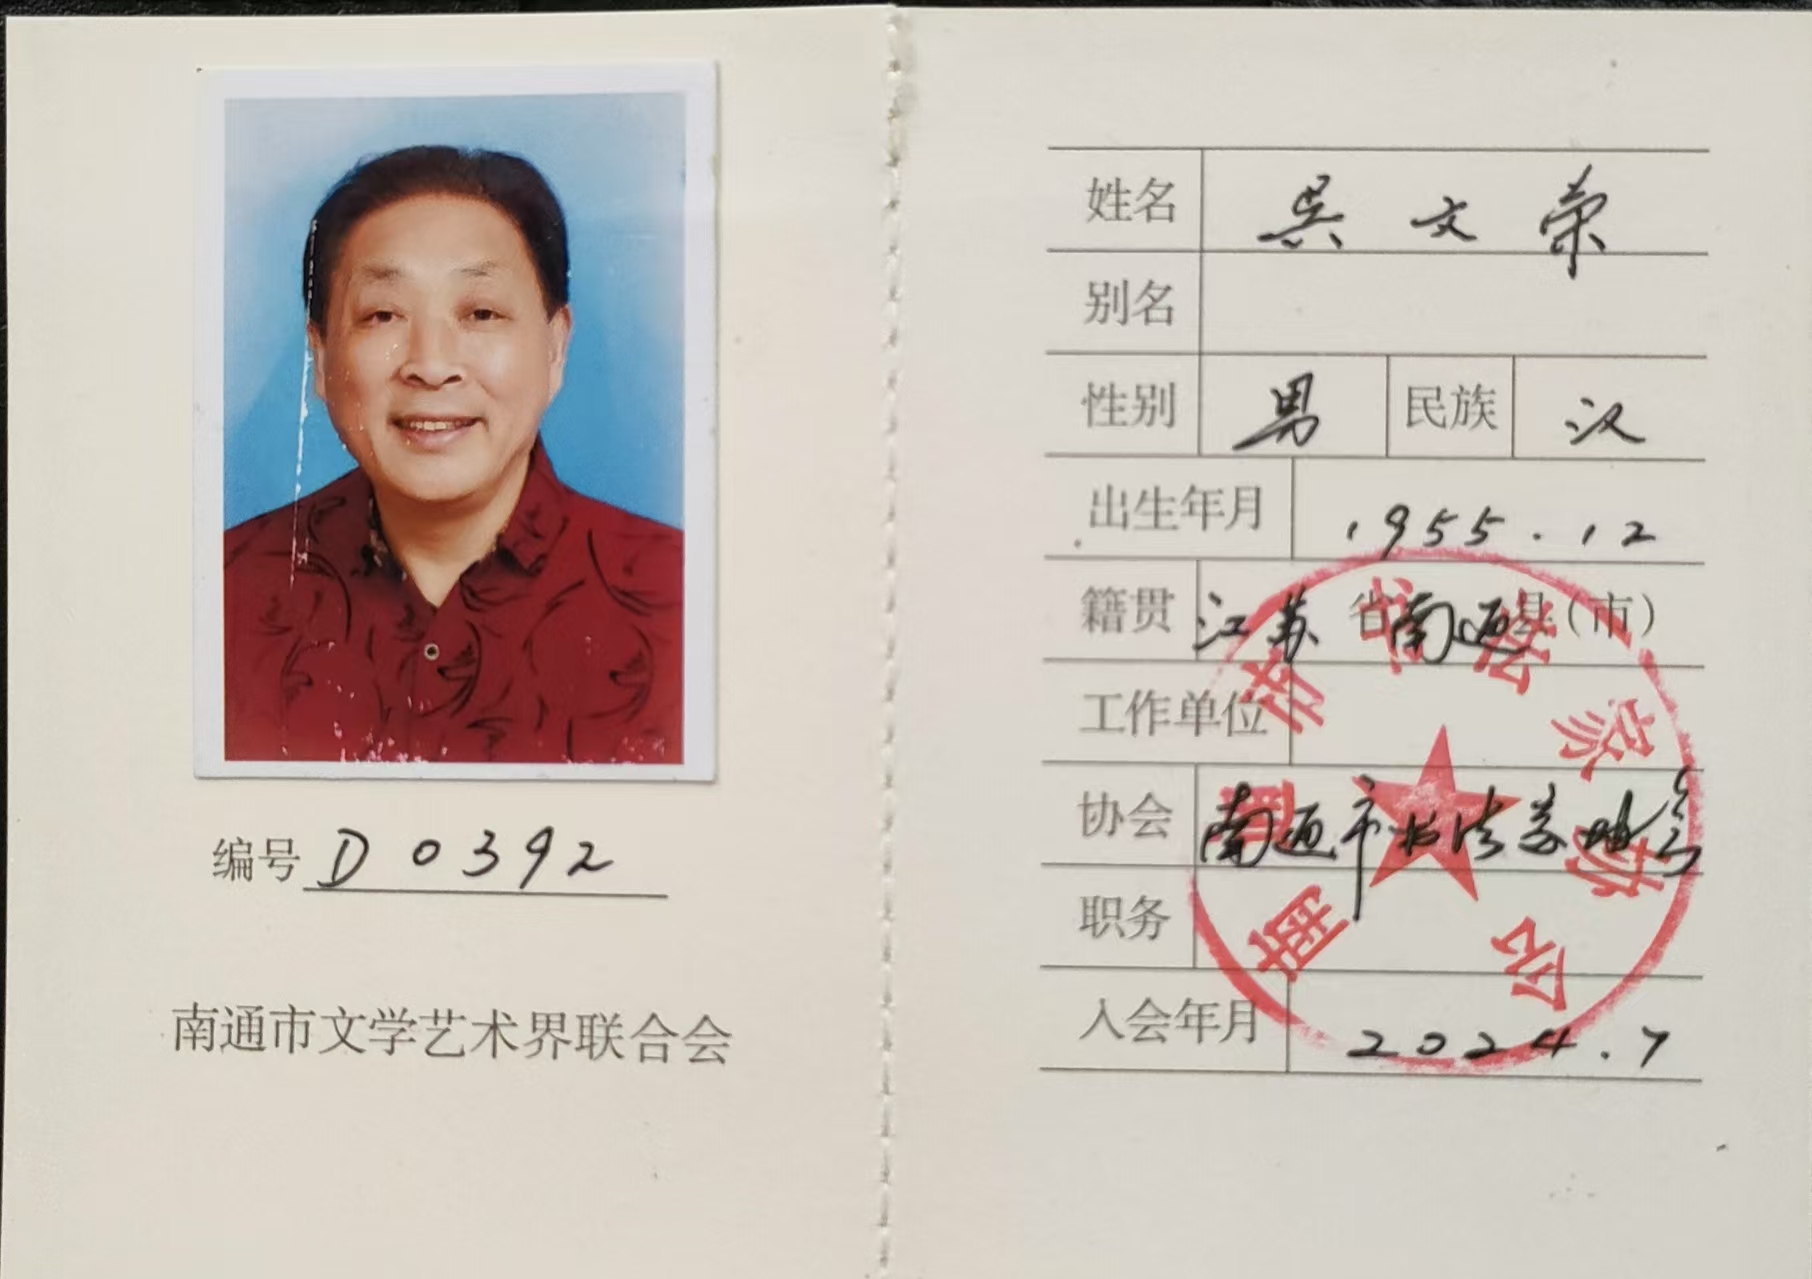 编号 D0392
南通市文学艺术界联合会
姓名 吴文荣
别名
性别 男 民族 汉
出生年月 1955.12
籍贯 江苏省南通县(市)
工作单位
协会 南通市书法家协会
职务
入会年月 2024.7
南通市书法家协会